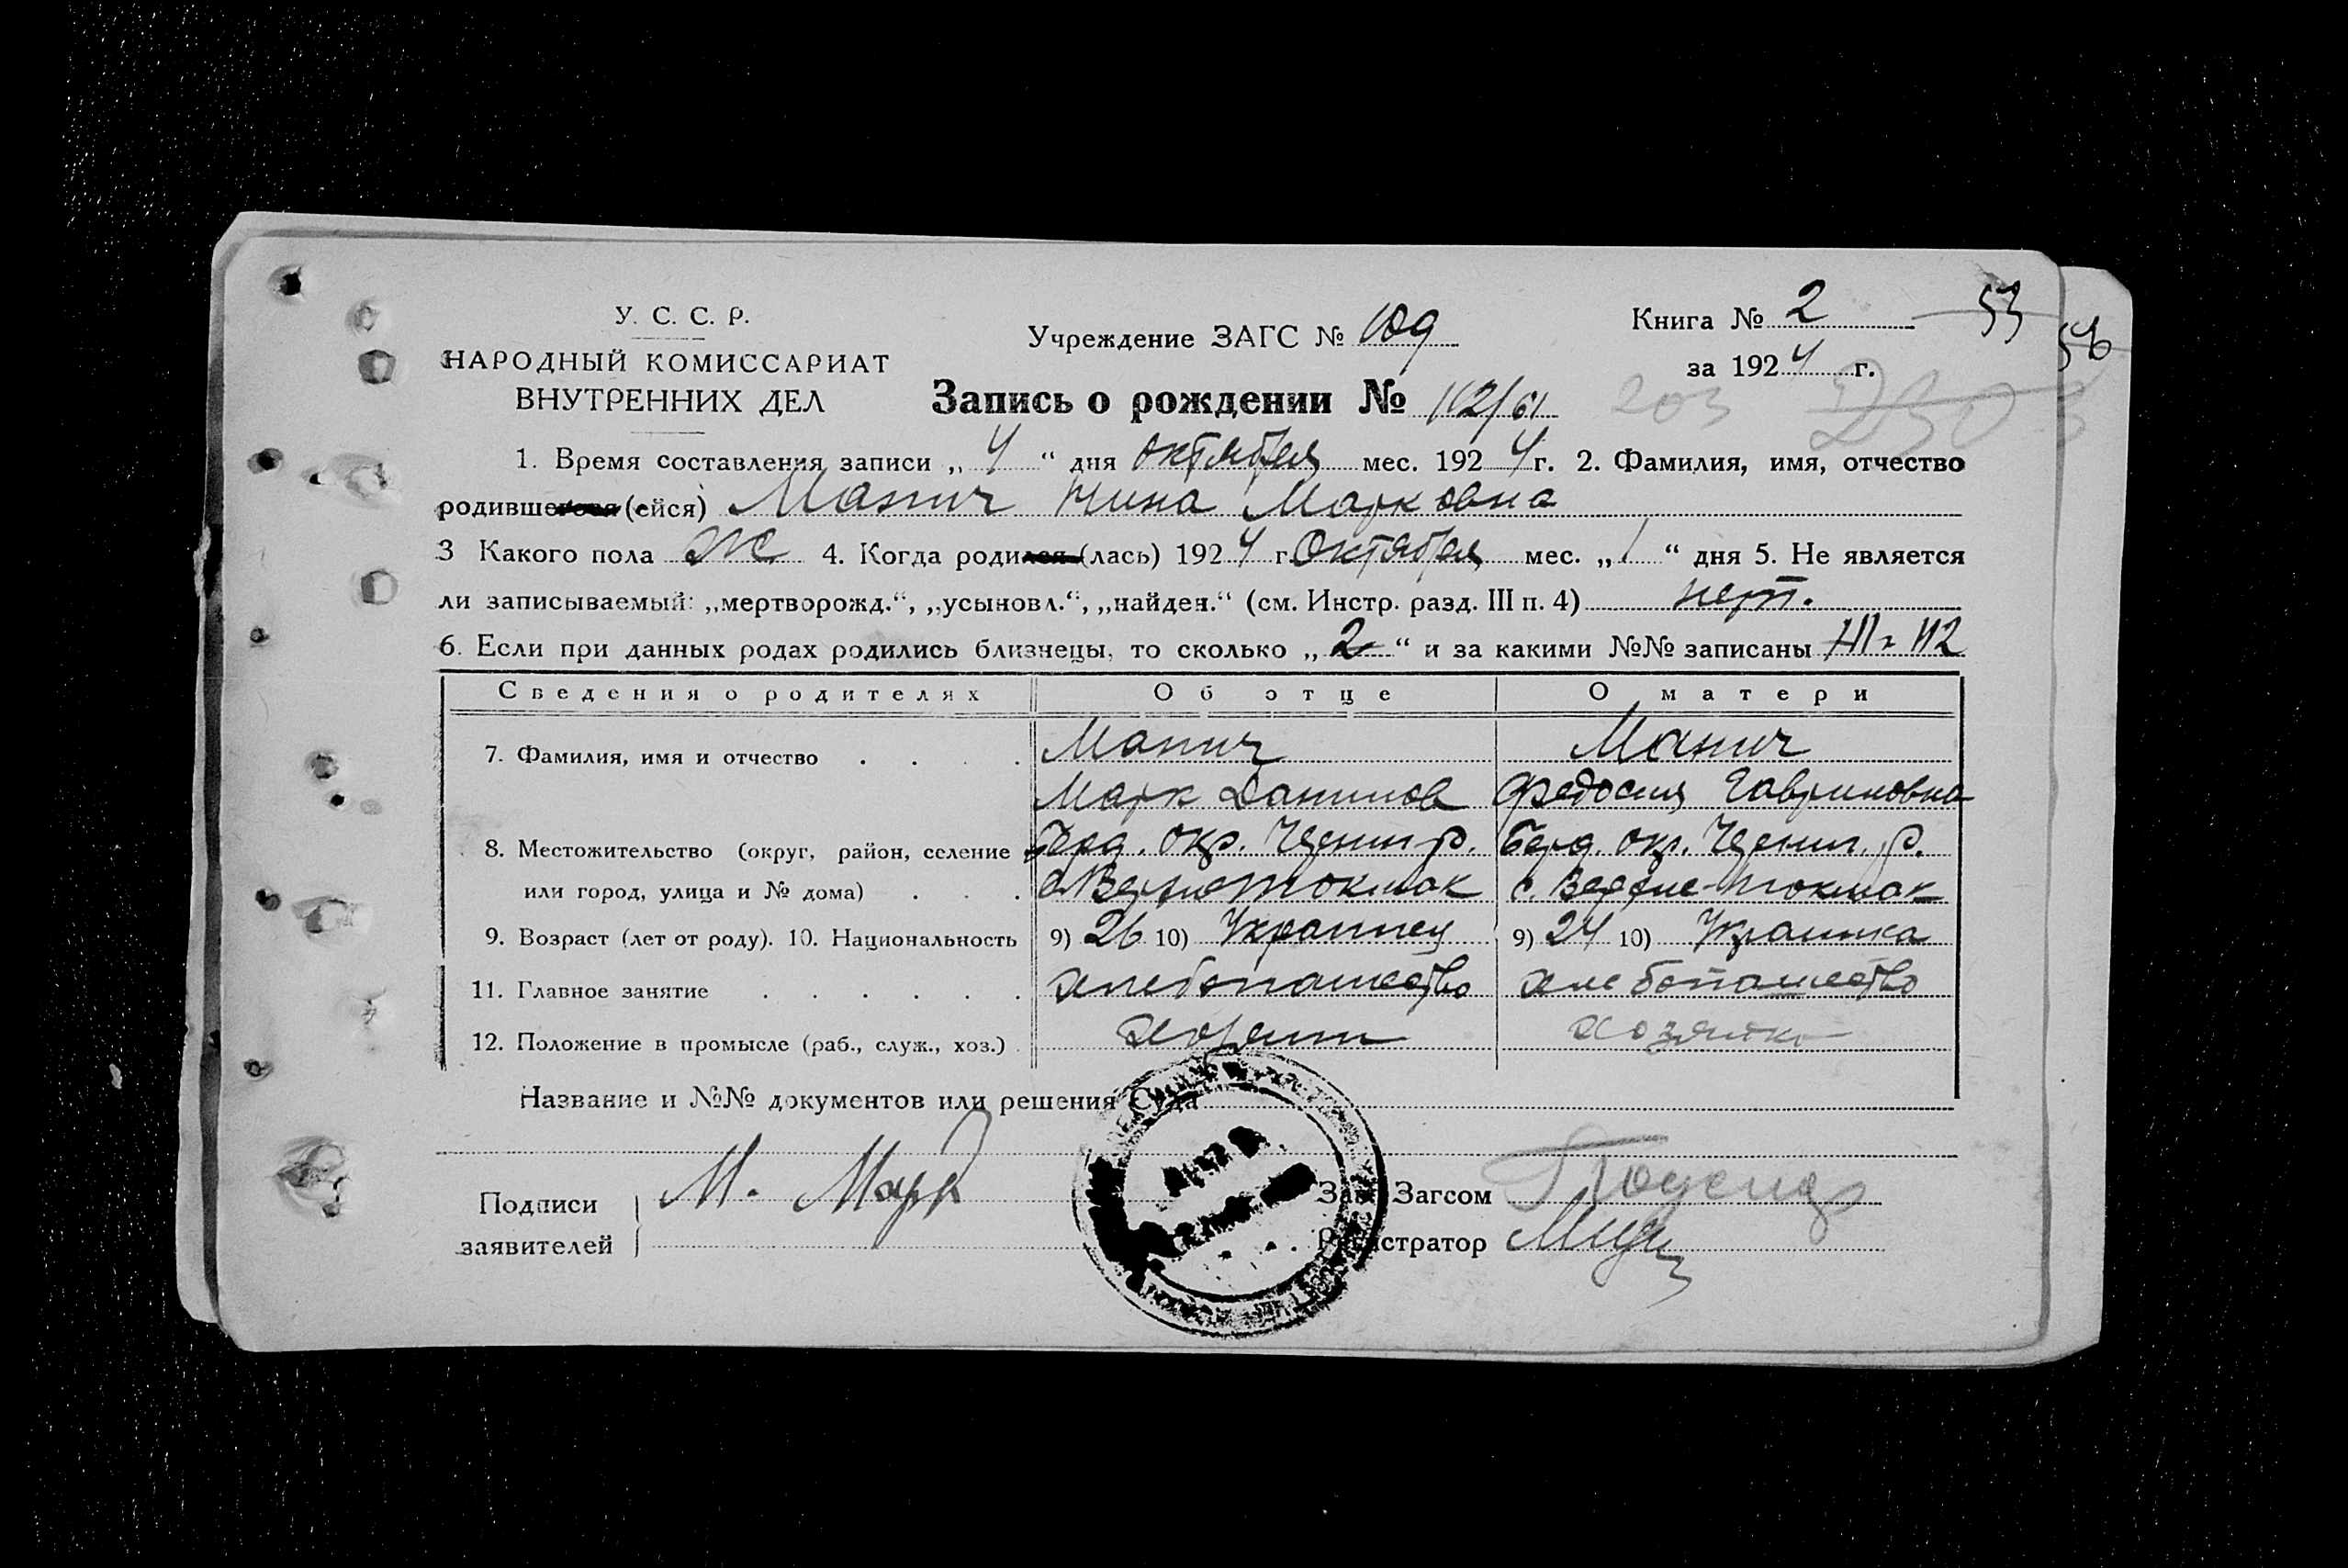 У. С. С. Р.
НАРОДНЫЙ КОМИССАРИАТ
ВНУТРЕННИХ ДЕЛ
Учреждение ЗАГС № 109
Книга № 2
53
56
за 1924 г.
Запись о рождении № 112/61
203
1. Время составления записи „ 4 “ дня октября мес. 1924 г. 2. Фамилия, имя, отчество
родившегося (ейся) Манич Нина Марковна
3 Какого пола ж 4. Когда родился (лась) 1924 г. Октября мес. „ 1 “ дня 5. Не является
ли записываемый: „мертворожд.“, „усыновл.“, „найден.“ (см. Инстр. разд. III п. 4) нет.
6. Если при данных родах родились близнецы, то сколько „ 2 “ и за какими №№ записаны 111 и 112
Сведения о родителях Об отце О матери
7. Фамилия, имя и отчество Манич Манич
Марк Данилов Федосия Гавриловна
8. Местожительство (округ, район, селение Берд. окр. р. Берд. окр. р.
или город, улица и № дома) с. Верхнетокмак с. Верхне-токмак
9. Возраст (лет от роду). 10. Национальность 9) 26 10) Украинец 9) 24 10) Украинка
11. Главное занятие хлебопашество хлебопашество
12. Положение в промысле (раб., служ., хоз.) хозяин хозяйка
Название и №№ документов или решения Суда
Подписи
заявителей
М.
Зав. Загсом
Регистратор